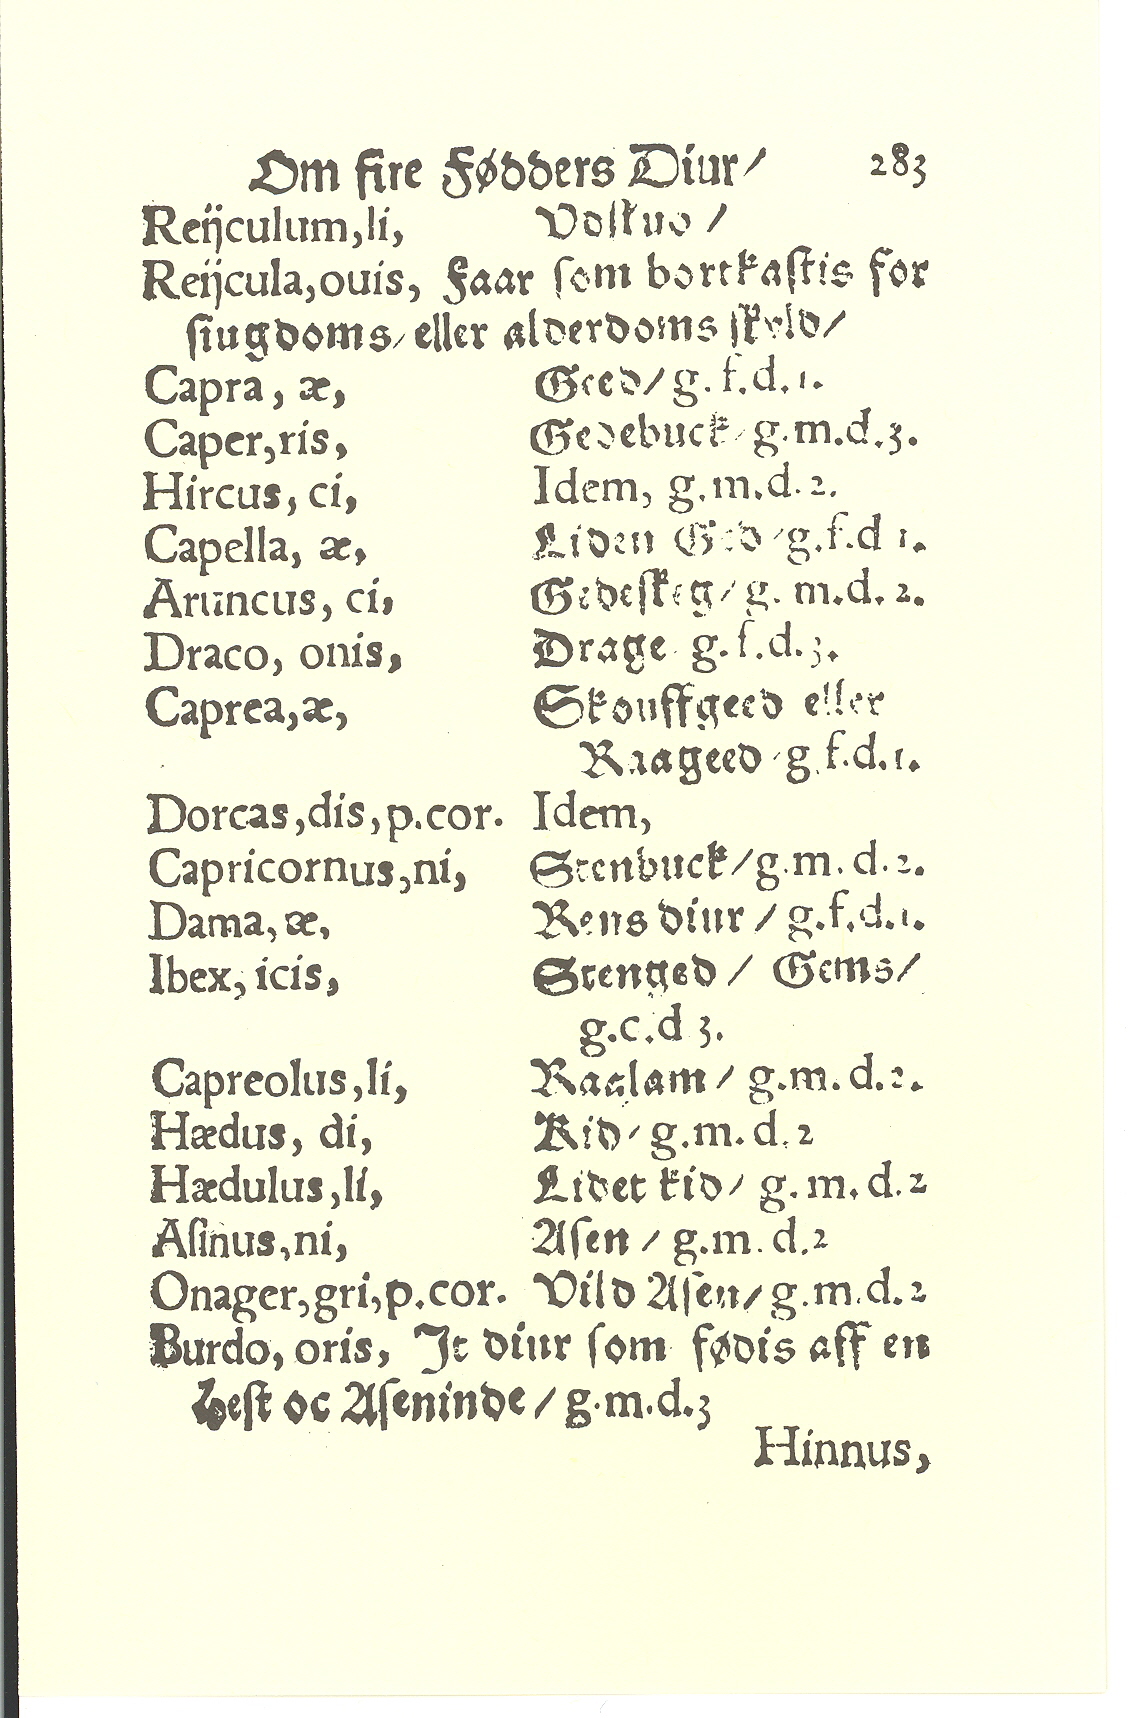 Om fire Fødders Diur/ 283
Reijculum,li,
Reijcula,ouis, Faar ſom bortkaſtis for
ſiugdoms/ eller alderdoms ſkyld/
Capra, æ, Geed/ g. f.d. 1.
Caper,ris, Gedebuck/ g.m.d.3.
Hircus, ci, Idem, g.m.d.2.
Capella, æ, Liden Ged/ g.f.d 1.
Aruncus, ci, Gedeſkeg/ g. m.d. 2.
Draco, onis, Drage g.f.d.3.
Caprea,æ, Skouffgeed eller
Raageed/ g.f.d.1.
Dorcas,dis,p.cor. Idem,
Capricornus,ni, Stenbuck/g.m.d.2.
Dama,æ, Rens diur / g.f.d.1.
Ibex, icis, Stenged / Gems/
g.c.d 3.
Capreolus,li, Raalam/ g.m.d.2.
Hædus, di, Kid/ g.m.d.2
Hædulus,li, Lidet kid/ g.m.d.2
Aſinus,ni, Aſen / g.m.d.2
Onager,gri,p.cor. Vild Aſen/ g.m.d.2
Burdo, oris, It diur ſom fødis aff en
Heſt oc Aſeninde/ g.m.d.3
Hinnus,